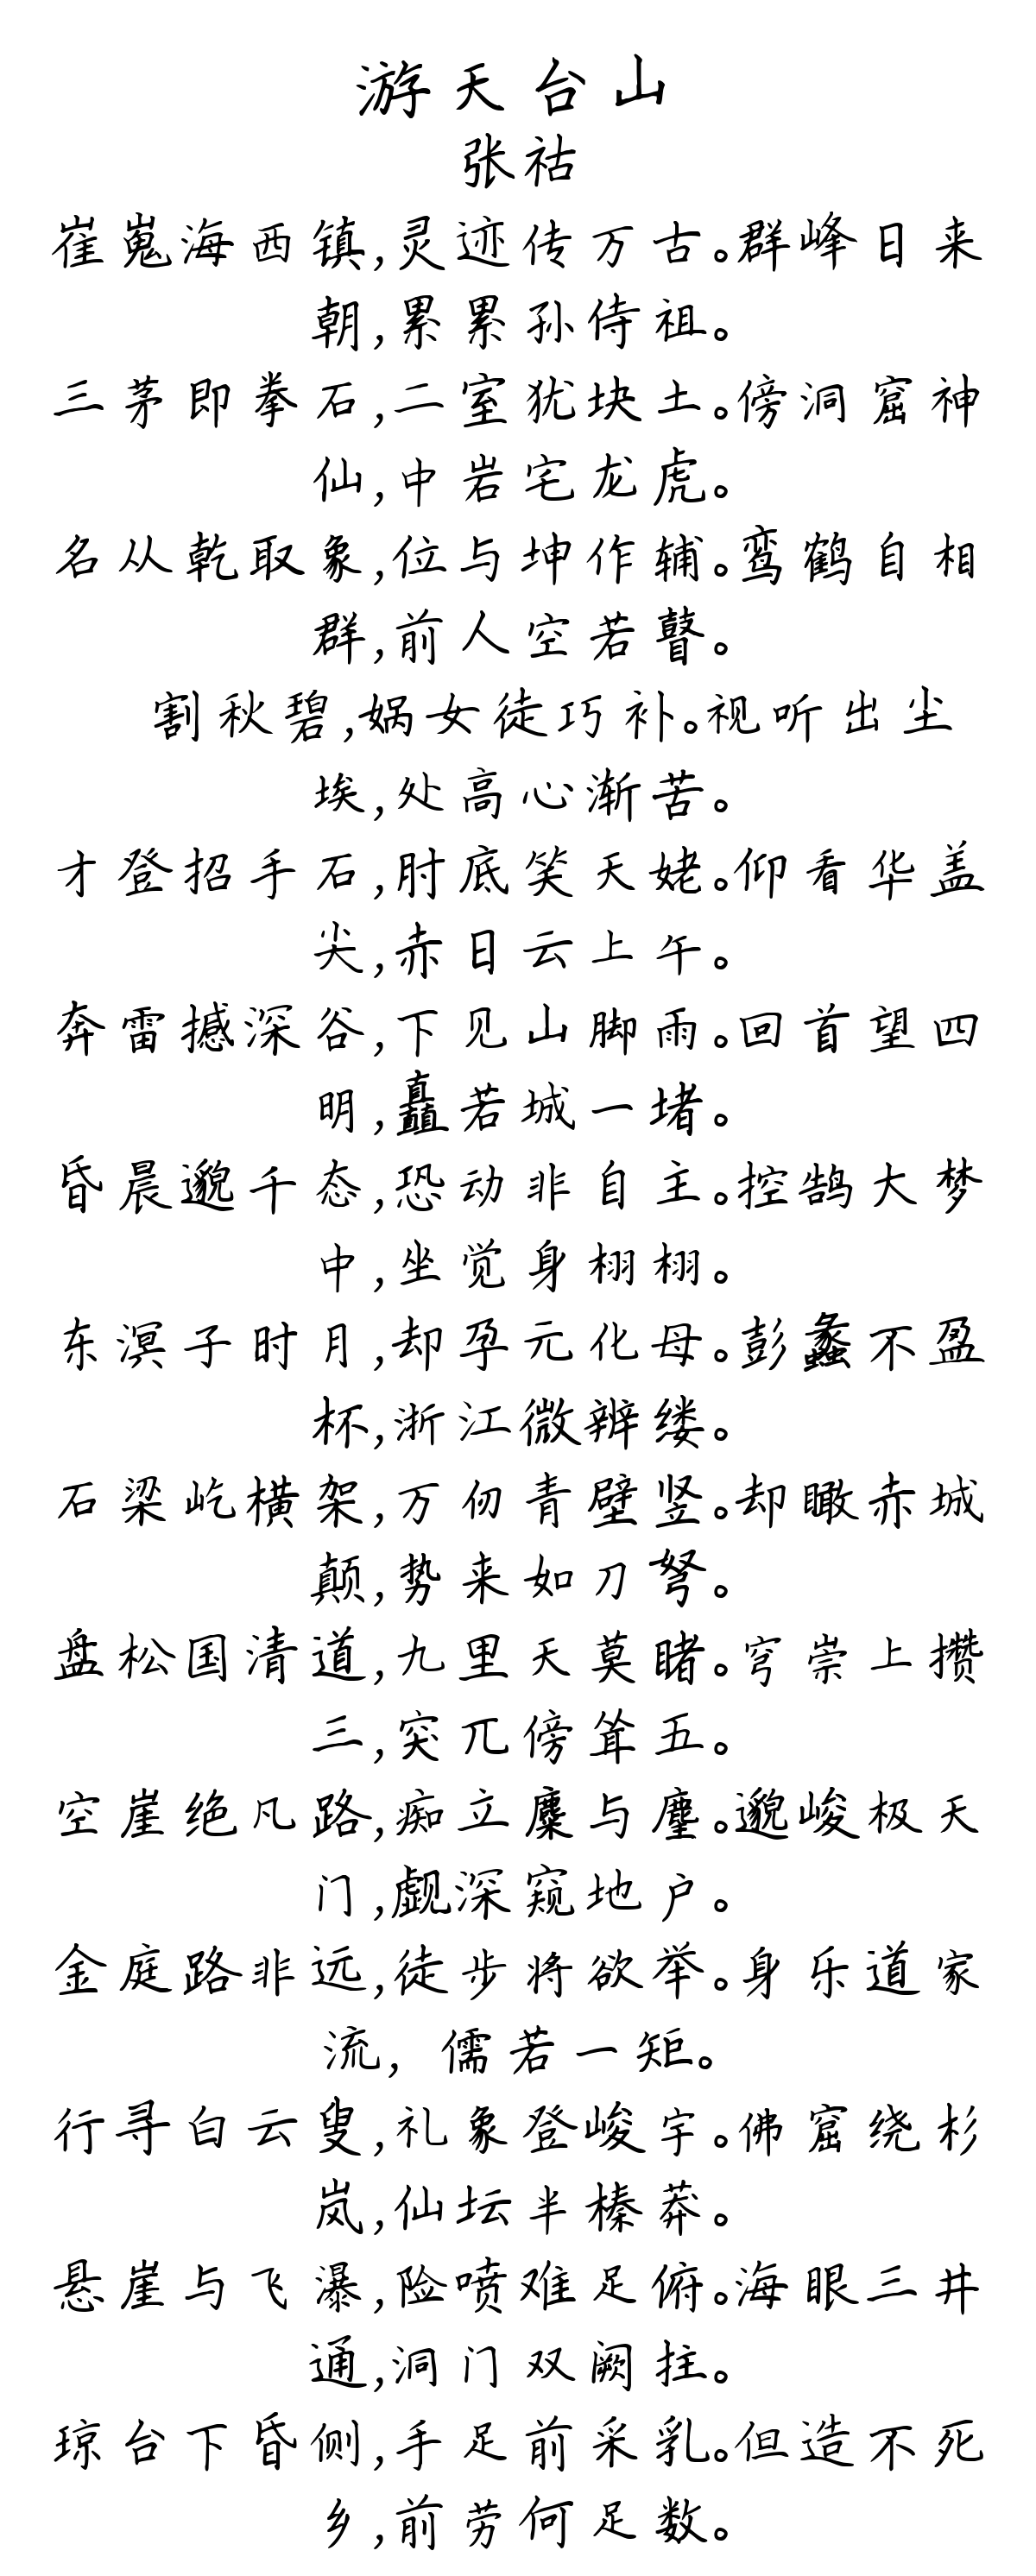 游天台山
张祜
崔嵬海西镇,灵迹传万古。群峰日来
朝,累累孙侍祖。
三茅即拳石,二室犹块土。傍洞窟神
仙,中岩宅龙虎。
名从乾取象,位与坤作辅。鸾鹤自相
群,前人空若瞽。
割秋碧,娲女徒巧补。视听出尘
埃,处高心渐苦。
才登招手石,肘底笑天姥。仰看华盖
尖,赤日云上午。
奔雷撼深谷,下见山脚雨。回首望四
明,矗若城一堵。
昏晨邈千态,恐动非自主。控鹄大梦
中,坐觉身栩栩。
东溟子时月,却孕元化母。彭蠡不盈
杯,浙江微辨缕。
石梁屹横架,万仞青壁竖。却瞰赤城
颠,势来如刀弩。
盘松国清道,九里天莫睹。穹崇上攒
三,突兀傍耸五。
空崖绝凡路,痴立麋与麈。邈峻极天
门,觑深窥地户。
金庭路非远,徒步将欲举。身乐道家
流，儒若一矩。
行寻白云叟,礼象登峻宇。佛窟绕杉
岚,仙坛半榛莽。
悬崖与飞瀑,险喷难足俯。海眼三井
通,洞门双阙拄。
琼台下昏侧,手足前采乳。但造不死
乡,前劳何足数。